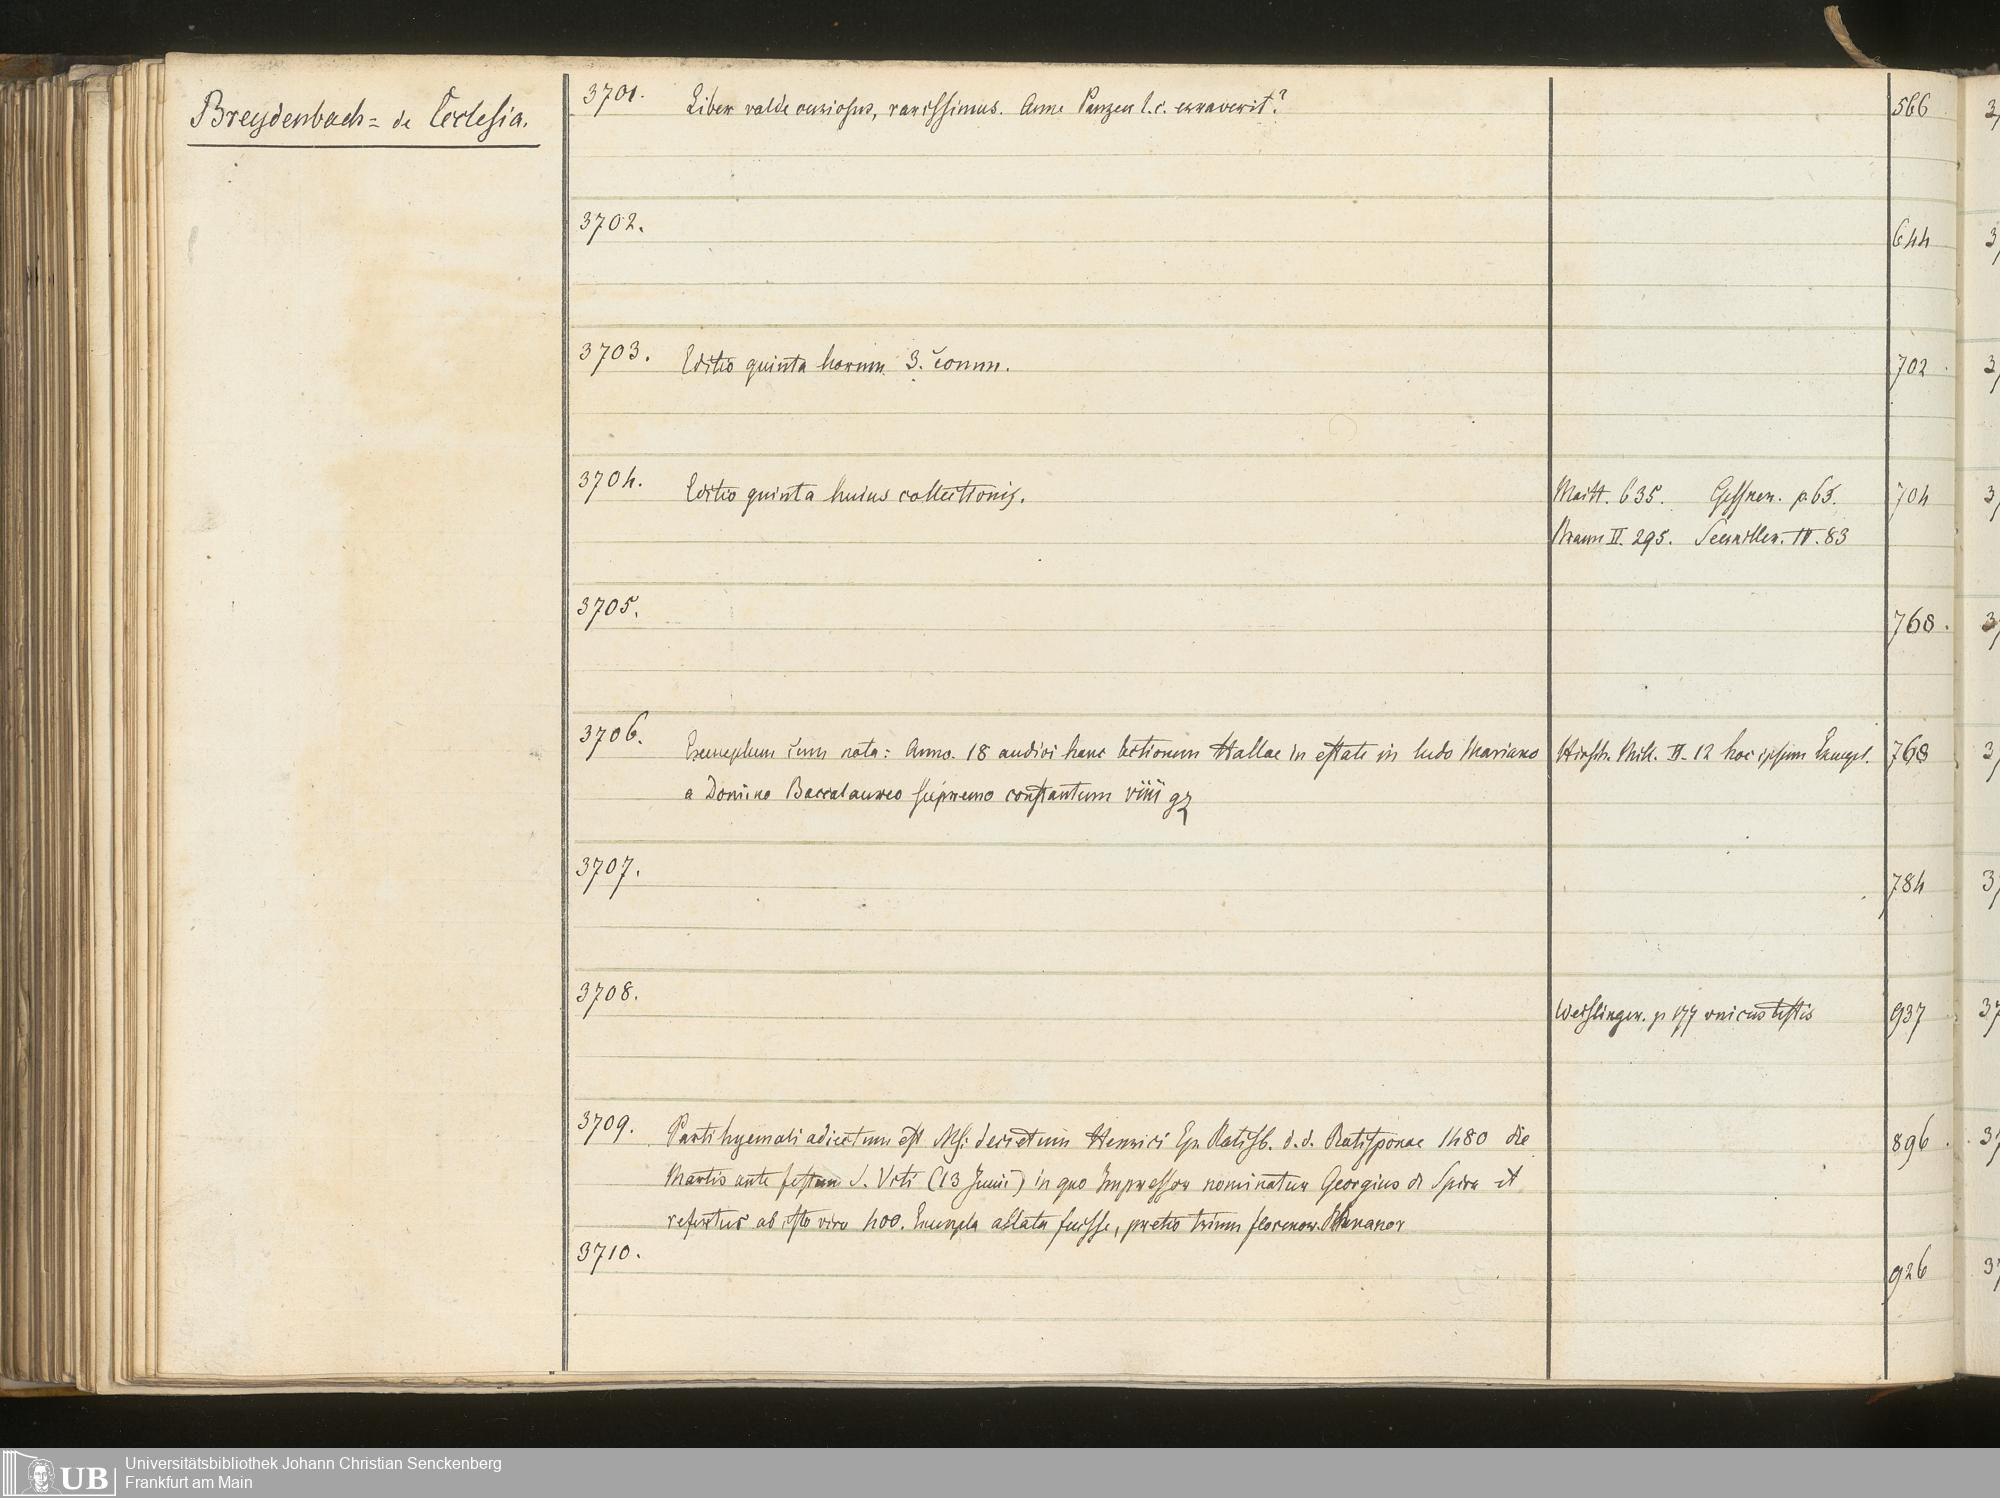 Breydenbach = de Ecclesia.
3701. Liber valde curiosus, rarissimus. Anne Panzer l.c. erraverit? 566
3702. 644
3703. Editio quinta horum 3. comm. 702
3704. Editio quinta huius collectionis. Maitt. 635. Gessner. p 63. 704
Braun II. 295. Seemiller. IV. 83
3705. 768.
3706. Exemplum cum nota: Anno. 18 audivi hanc lectionem Hallae in estate in ludo Mariano Hirsch. Mill. II. 12 hoc ipsum Exempl. 768
a Domino Baccalaureo supremo constantem viiii gz
3707. 784
3708. Weislinger. p 177 unicus testis 937
3709. Parti hyemali adiectum est Ms: decretum Henrici Ep. Ratisb. d. d. Ratisponae 1480 die 896
Martis ante festum S. Viti (13 Junii) in quo Impressor nominatur Georgius de Spira et
refertur ab isto viro 400. Exempla allata fuisse, pretio trium florenor. Rhenanor
3710. 926
UB Universitätsbibliothek Johann Christian Senckenberg
Frankfurt am Main